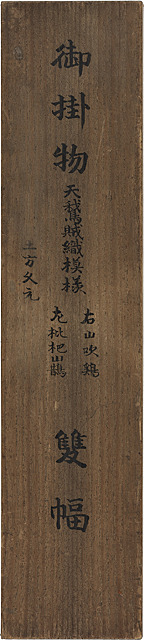 御掛物
天鵞絨織模様
右山吹鶏
左枇杷山鵲
雙幅
土方久元